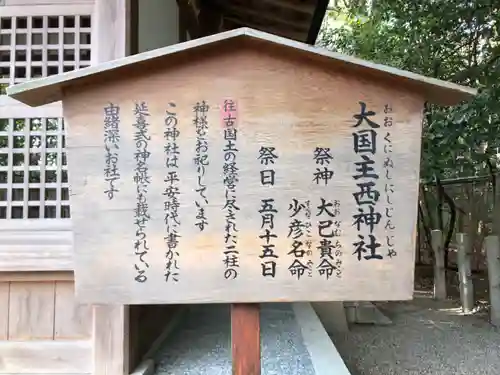 おおくにぬしにしじんじゃ
大国主西神社
祭神 大己貴命
おおなむちのみこと
少彦名命
すくなひこなのみこと
祭日 五月十五日
往古国土の経営に尽された二柱の
神様をお祀りしています
この神社は 平安時代に書かれた
延喜式の神名帳にも載せられている
由緒深いお社です